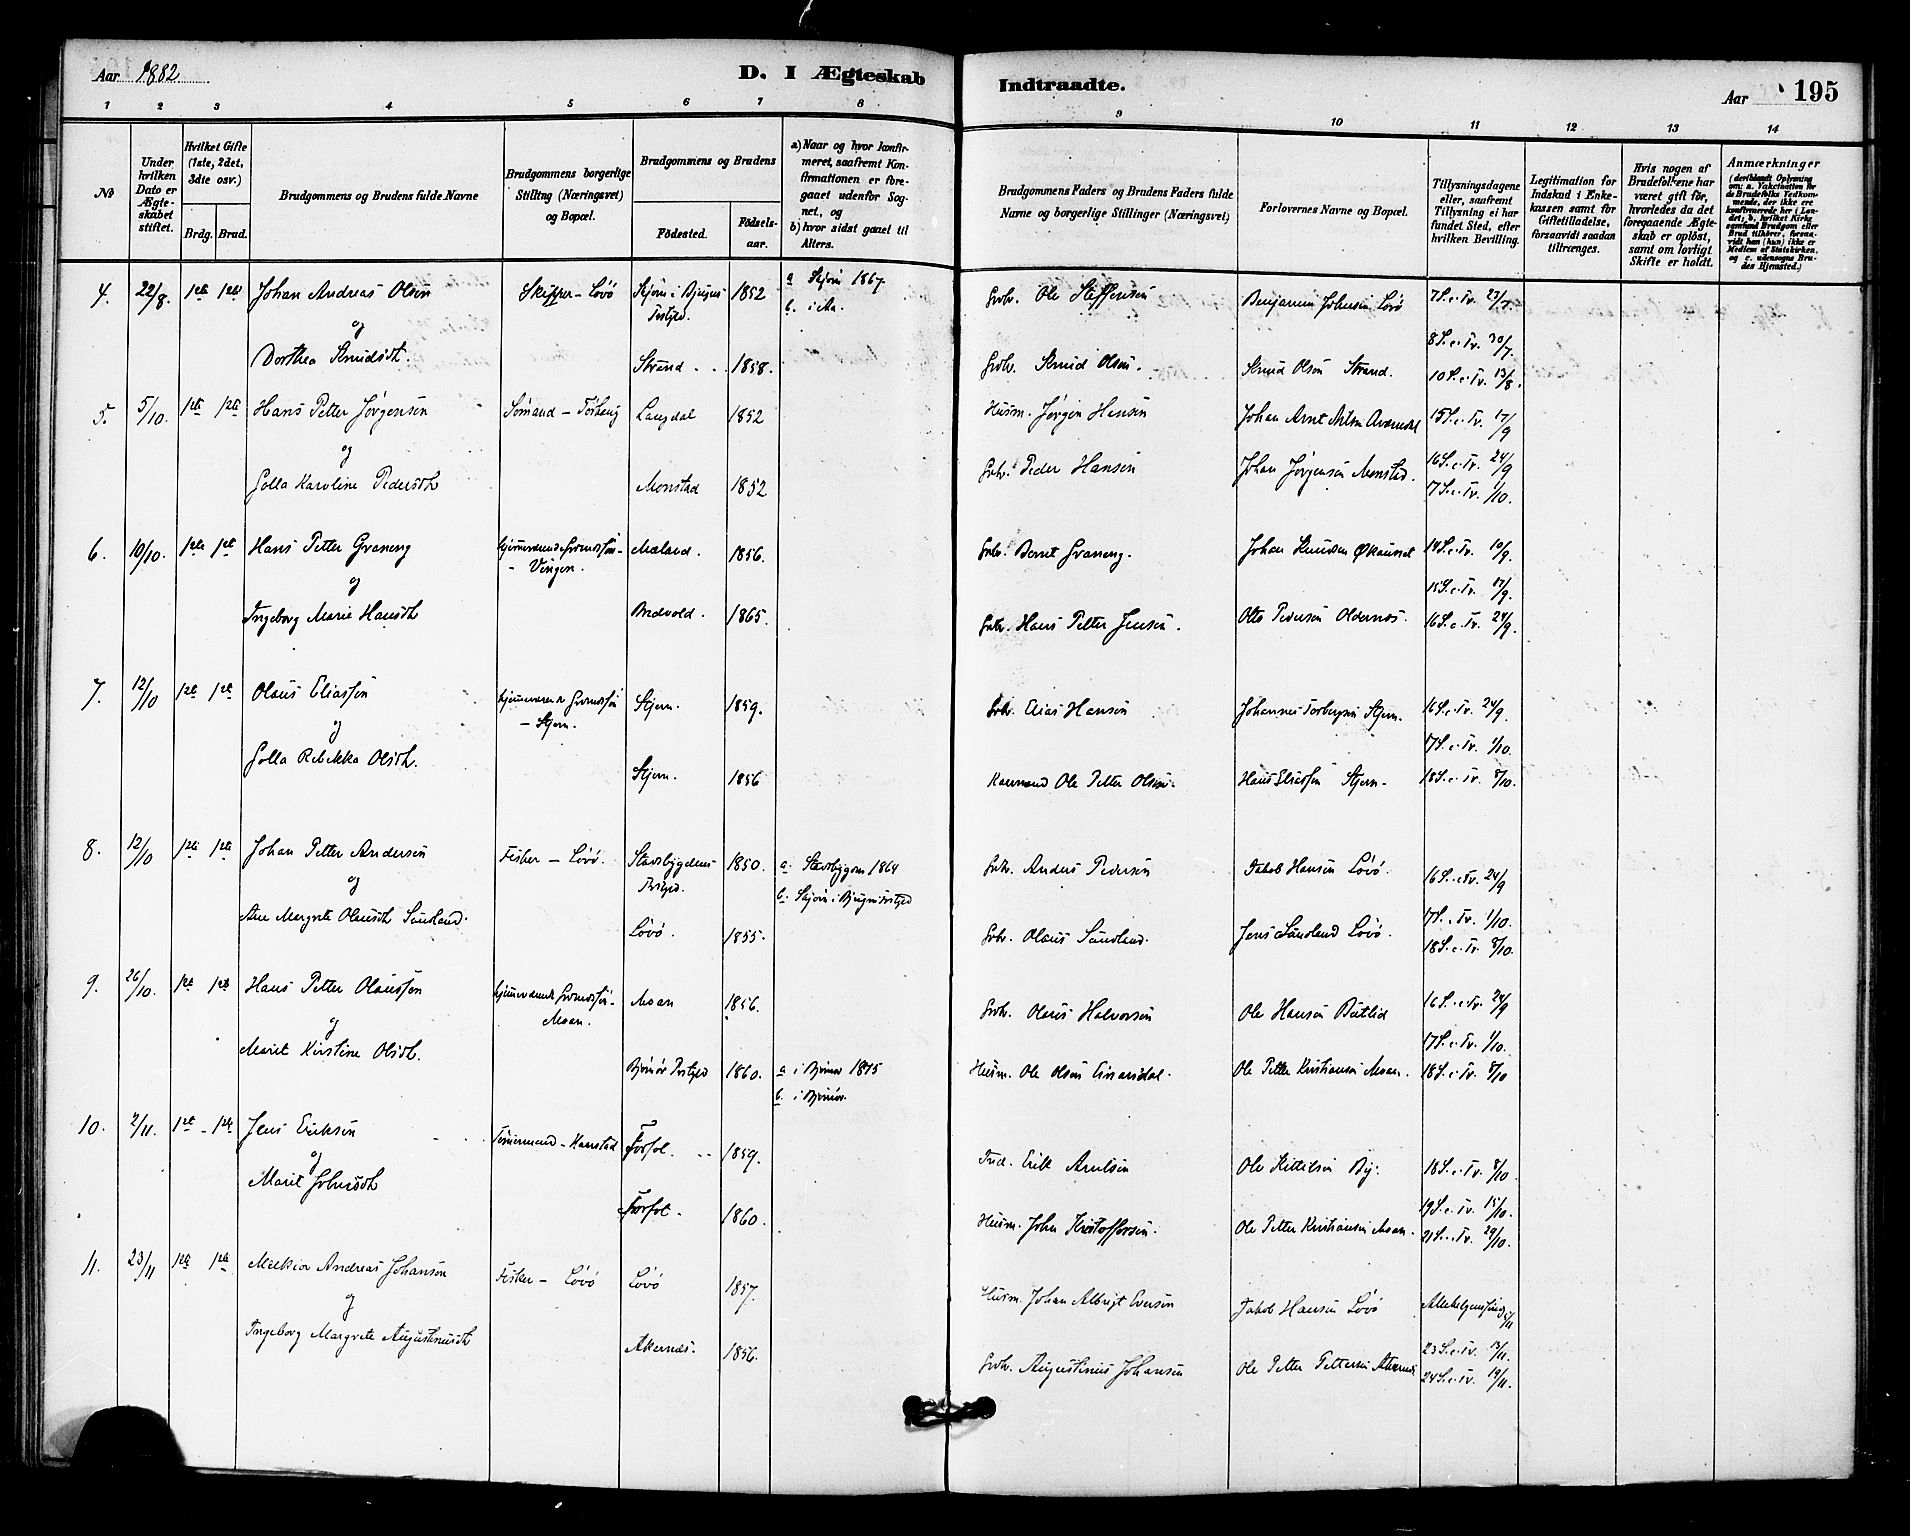 Aar 1882
D. I Ægteskab
Indtraadte.
Aar 195
1 2 3 4 5 6 7 8 9 10 11 12 13 14
No
Under hvilken Dato er Ægteskabet stiftet.
Hvilket Gifte (1ste, 2det, 3die osv.)
Brdg. Brud.
Brudgommens og Brudens fulde Navne
Brudgommens borgerlige Stilling (Næringsvei) og Bopæl.
Brudgommens og Brudens
Fødested. Fødselsaar.
a) Naar og hvor konfirmeret, saafremt Konfirmationen er foregaaet udenfor Sognet, og
b) hvor sidst gaaet til Alters.
Brudgommens Faders og Brudens Faders fulde Navne og borgerlige Stillinger (Næringsvei)
Forlovernes Navne og Bopæl.
Tillysningsdagene eller, saafremt Tillysning ei har fundet Sted, efter hvilken Bevilling.
Legitimation for Indskud i Enkekassen samt for Giftetilladelse, forsaavidt saadan tiltrænges.
Hvis nogen af Brudefolkene har været gift før, hvorledes da det foregaaende Ægteskab er opløst, samt om lovligt Skifte er holdt.
Anmærkninger
(deriblandt Oplysning om: a. Vakcination for de Brudefolks Vedkommende, der ikke ere konfirmerede her i Landet; b. hvilket Kirkesamfund Brudgom eller Brud tilhører, forsaavidt han (hun) ikke er Medlem af Statskirken, og c. udensogns Brudes Hjemsted.)
4. 22/8. 1ste 1ste Johan Andreas Olsen Skipper - Lövö Skjørn i Bjugns Prstgjd. 1852 a Skjörn 1867. Grbr. Ole Steffensen Benjamin Johnsen Lövö 7 S. e. Tr. 23/7
b. i Aa.
og
8 S. e. Tr. 30/7.
Dorthea Knudsdt. Strand 1858. Grbr. Knud Olsen. Knud Olsen Strand. 10 S. e. Tr. 13/8.
5. 5/10. 1ste 1ste Hans Petter Jørgensen Sømand - Langdal 1852 Husm. Jørgen Hansen Johan Arnt Nilsen 15 S. e. Tr. 17/9
og
16 S. e. Tr. 24/9
Golla Karoline Pedersdt Monstad 1852 Grbr. Peder Hansen Johan Jørgensen Monstad. 17 S. e. Tr. 1/10.
6. 10/10. 1ste 1ste Hans Petter Graneng hjemmeværende Grdmdssön - Vingen. Mæland. 1856. Grbr. Bernt Graneng. Johan Knudsen 14 S. e. Tr. 10/9.
og
15 S. e. Tr. 17/9.
Ingeborg Marie Hansdt Bredvold. 1865. Grbr. Hans Petter Jensen. Otto Pedersen Oldernes. 16 S. e. Tr. 24/9.
7. 12/10 1ste 1ste Olaus Eliassen hjemmeværende Grdmdssön - Stjern. Stjern. 1859. Grbr. Elias Hansen Johannes Torbergsen Stjern. 16 S. e. Tr. 24/9.
og
17 S. e. Tr. 1/10.
Golla Rebekka Olsdt. Stjern. 1856 Kaarmand Ole Petter Olsen. Hans Eliassen Stjern. 18 S. e. Tr. 8/10.
8. 12/10 1ste 1ste Johan Petter Andersen Fisker - Lövö. Stadsbygdens Prstgjd. 1850. a. Stadsbygden 1864 Grbr. Anders Pedersen Jakob Hansen Lövö. 16 S. e. Tr. 24/9
b. Skjörn i Bjugns Prstgjd
og
17 S. e. Tr. 1/10.
Ane Margrete Olausdt Sundland. Lövö. 1855. Grbr. Olaus Sundland. Jens Sundland Lövö. 18 S. e. Tr. 8/10.
9. 26/10. 1ste 1ste Hans Petter Olaussen hjemmeværende Grdmdssön - Moan. Moan 1856. Grbr. Olaus Halvorsen Ole Hansen 16 S. e. Tr. 24/9
og
17 S. e. Tr. 1/10.
Marit Kirstine Olsdt. Bjørnør Prstgjd 1860. a i Bjørnør 1875 Husm. Ole Olsen Einarsdal. Ole Petter Kristiansen Moan. 18 S. e. Tr. 8/10
b. i Bjørnør.
10. 2/11. 1ste - 1ste Jens Eriksen Tømermand - Kaarstad Forfol. 1859. Ind. Erik Arntsen Ole Kittilsen By. 18 S. e. Tr. 8/10.
og
19 S. e. Tr. 15/10.
Marit Johnsdt Forfol. 1860. Husm. John Kristoffersen. Ole Petter Kristiansen Moan. 21 S. e. Tr. 29/10.
11. 23/11 1ste 1ste Melkior Andreas Johansen Fisker - Lövö Lövö 1857. Husm. Johan Albrigt Eversen Jakob Hansen Lövö Allehelgensdag 5/11
og
23 S. e. Tr. 12/11.
Ingeborg Margrete Augustinusdt Akernes. 1856. Grbr. Augustinus Johansen Ole Petter Pettersen Akernes 24 S. e. Tr. 19/11.